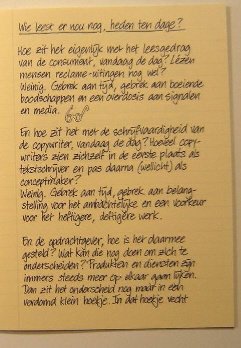 Wie leest er nou nog, heden ten dage?
Hoe zit het eigenlijk met het leesgedrag
van de consument, vandaag de dag? Lezen
mensen reclame-uitingen nog wel?
Weinig. Gebrek aan tijd, gebrek aan boeiende
boodschappen en een overdosis aan signalen
en media.
En hoe zit het met de schrijfvaardigheid van
de copywriter, vandaag de dag? Hoeveel copy-
writers zien zichzelf in de eerste plaats als
tekstschrijver en pas daarna (wellicht) als
conceptmaker?
Weinig. Gebrek aan tijd, gebrek aan belang-
stelling voor het ambachtelijke en een voorkeur
voor het heftigere, deftigere werk.
En de opdrachtgever, hoe is het daarmee
gesteld? Wat kan die nog doen om zich te
onderscheiden? Produkten en diensten zijn
immers steeds meer op elkaar gaan lijken.
Dan zit het onderscheid nog maar in een
verdomd klein hoekje. In dat hoekje vecht